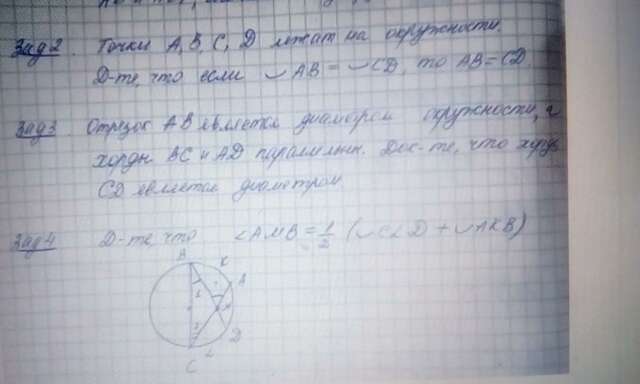 Зад 2. Точки A, B, C, D лежат на окружности.
Д-те, что если ◡AB = ◡CD, то AB = CD
Зад 3. Отрезок AB является диаметром окружности, а
хорды BC и AD параллельны. Док-те, что хорда
CD является диаметром
Зад 4 Д-те, что ∠AMB = 1/2 (◡CLD + ◡AKB)
B K
A
1
M
2
D
L
C